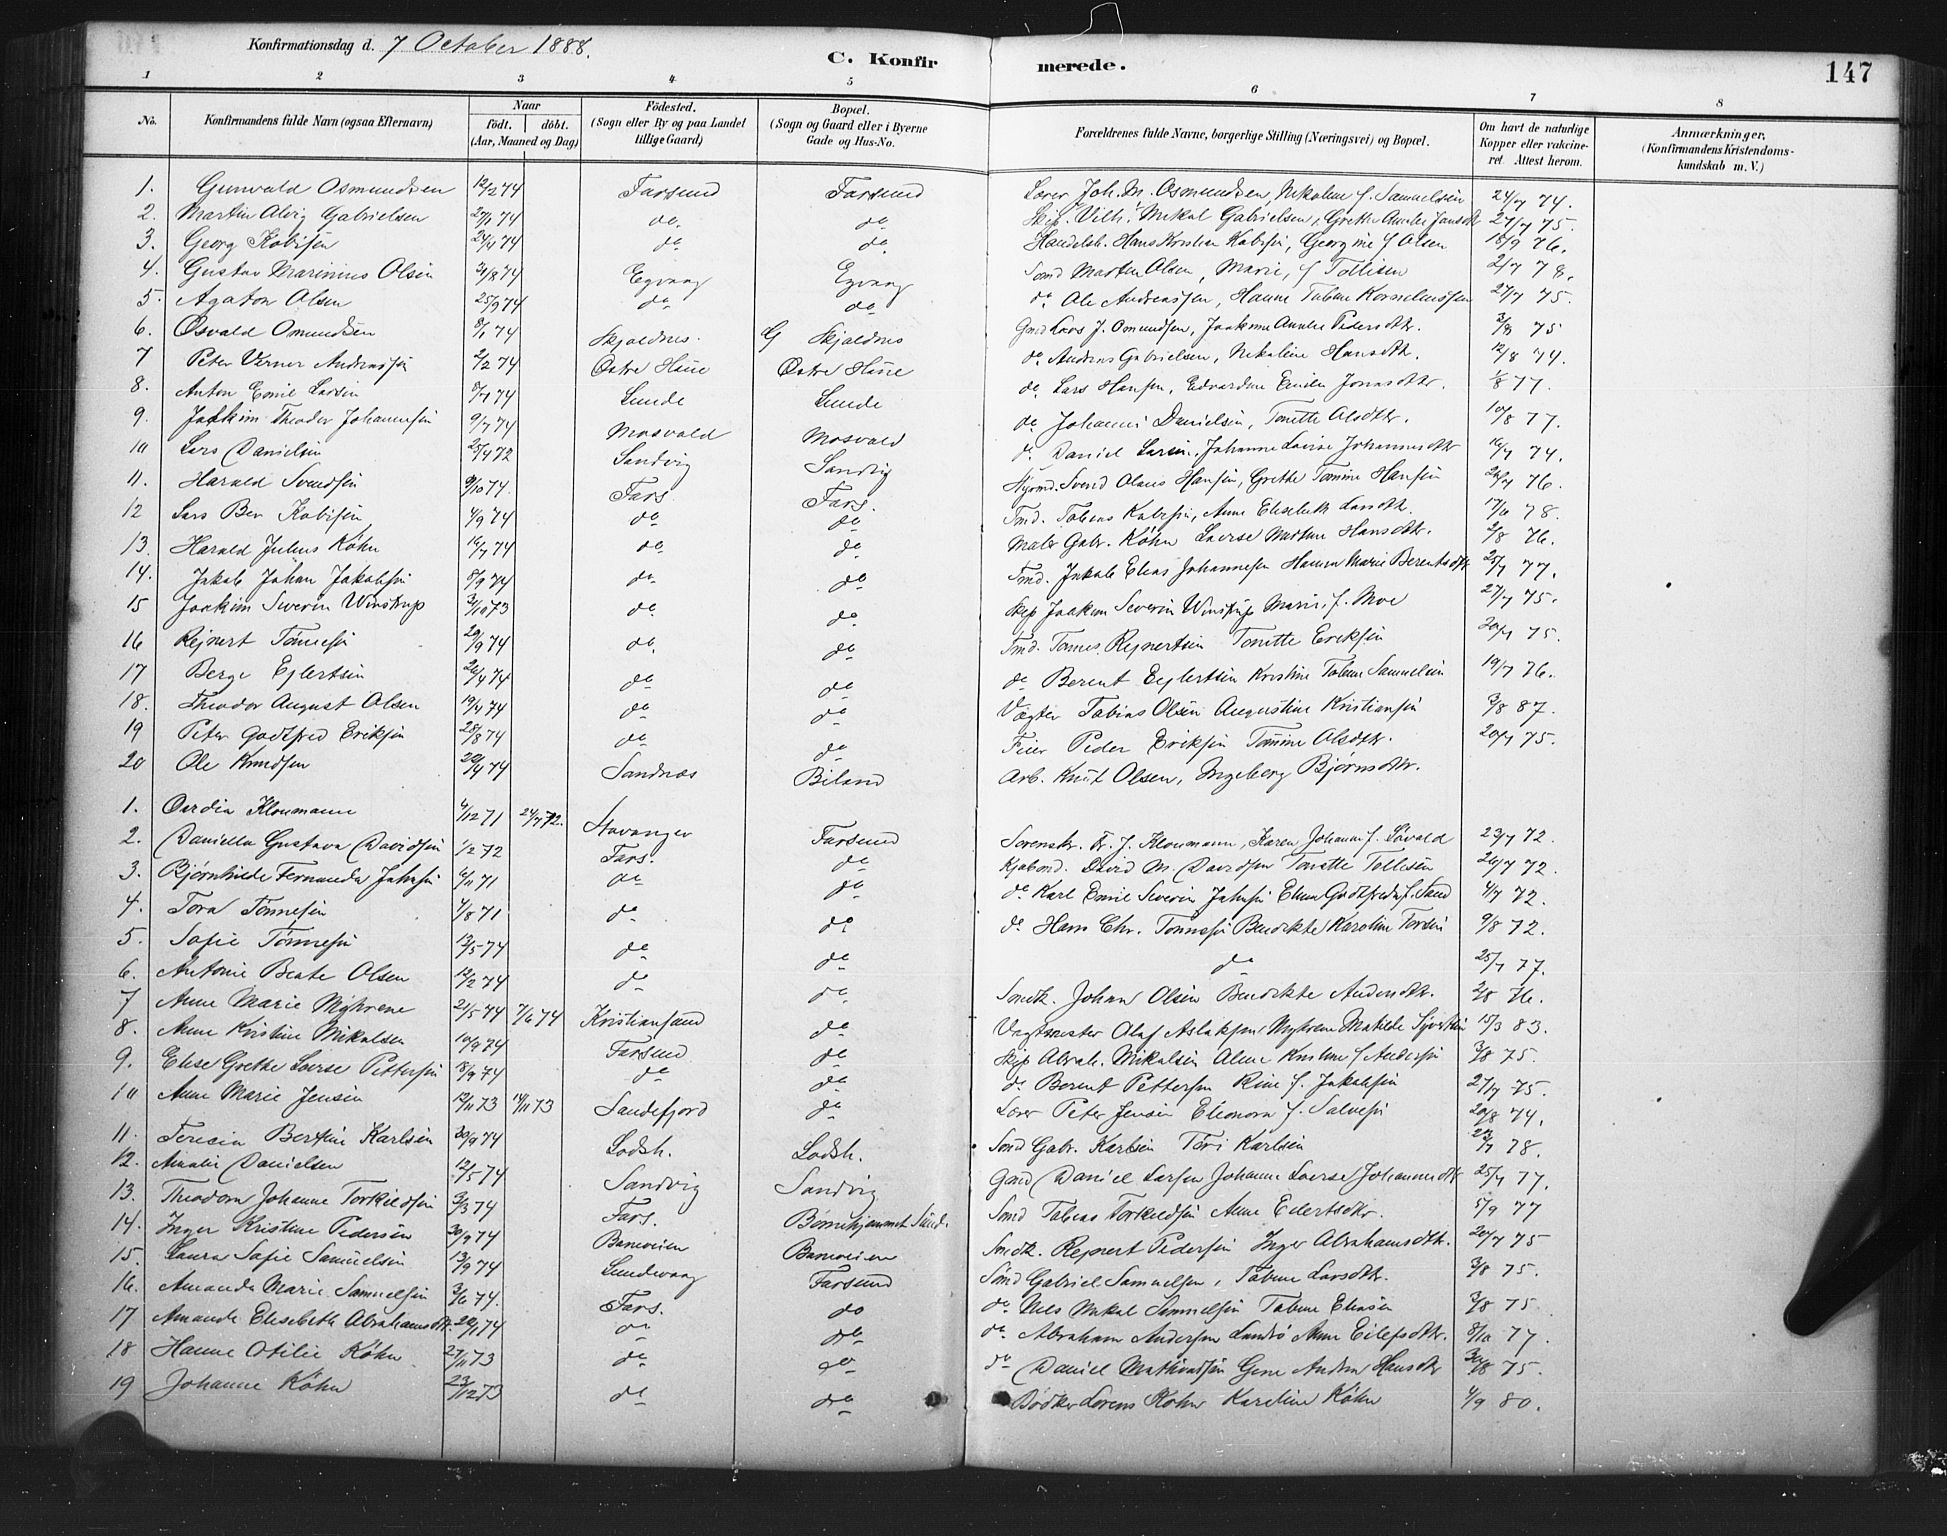 Konfirmationsdag d. 7 October 1888.
C. Konfirmerede.
147
1 2 3 4 5 6 7 8
No. Konfirmandens fulde Navn (ogsaa Efternavn) Naar født. døbt. (Aar, Maaned og Dag) Fødested. (Sogn eller By og paa Landet tillige Gaard) Bopæl. (Sogn og Gaard eller i Byerne Gade og Hus-No. Forældrenes fulde Navne, borgerlige Stilling (Næringsvei) og Bopæl. Om havt de naturlige Kopper eller vakcineret. Attest herom. Anmærkninger. (Konfirmandens Kristendomskundskab m. V.)
1. Gunvald Osmundsen 12/2 74 Farsund Farsund Joh. M. Osmundsen, Nikoline f. Samuelsen 24/7 74.
2. Martin Alvig Gabrielsen 27/1 74 do do Skip. Vilh. Mekal Gabrielsen, Grethe Amalie Jansdtr 27/7 75.
3. Georg Kobisen 24/4 74 do do Handelsb. Hans Kristian Kobisen, Georgine f Olsen 18/9 76.
4. Gustav Marinius Olsen 31/8 74 Egvaag Egvaag Smd Marten Olsen, Marie, f Tollisen 2/7 78.
5. Agaton Olsen 25/9 74 do do do Ole Andreassen, Hanne Tabine Korneliussen 27/7 75.
6. Osvald Omundsen 8/1 74 Skjoldnes. G Skjoldnes Gmd Lars J. Omundsen, Joakime Amalie Pedersdtr. 3/8 75
7 Peter Verner Andreassen 2/2 74 Østre Haue Østre Haue do Andreas Gabrielsen, Nikoline Hansdtr. 12/8 74.
8. Anton Emil Larsen 8/7 74 Lunde Lunde do Lars Hansen, Edvardine Emilie Jonasdtr. 1/8 77.
9. Joakim Theodor Johannesen 9/7 74 Mosvold Mosvold do Johannes Danielsen, Tonette Olsdtr. 10/8 77.
10 Lars Danielsen 25/4 72 Sandvig Sandvig do Daniel Larsen, Johanne Lovise Johannesdtr 16/7 74.
11. Harald Svendsen 9/10 74. Fars. Fars. Styrmd. Svend Olaus Hansen, Grethe Tomine Hansen 20/7 76.
12 Lars Ber. Kobisen 4/9 74 do do Tmd. Tobias Kobisen, Anne Elisebeth Larsdtr. 78.
13. Harald Julius Köhn 16/7 74 do do Maler Gabr. Köhn Lovise Martine Hansdtr. 2/8 76.
14. Jakob Johan Jakobsen 8/9 74 do do Tmd. Jakob Elias Johannesen Hanna Marie Berentsdtr 25/7 77.
15 Joakim Severin Winstrup 3/10 73 do do Skip Joakim Severin Winstrup Marie, f. Moe 27/7 75.
16 Rejnert Tønnesen 29/9 74 do do Tmd. Tønnes Rejnertsen Tonette Eriksen 20/7 75.
17 Berge Ejlertsen 26/4 74 do do do Berent Ejlertsen Kristine Tabine Samuelsen 19/7 76.
18. Theodor August Olsen 19/4 74 do do Vægter Tobias Olsen Augustine Kristiansen 3/8 87.
19 Peter Godtfred Eriksen 28/8 74 do do Feier Peder Eriksen Tomine Olsdtr. 20/7 75.
20 Ole Knudsen 22/4 74 Sandnæs Biland Arb. Knut Olsen, Ingeberg Bjørnsdtr.
1. Klouman 4/12 71 24/7 72. Stavanger Farsund Sorenskr. Fr. J. Kloumann, Karen Johanne f. Løvald 23/7 72.
2. Daniella Gustava Davidsen 1/2 72 Fars. do Kjøbmd. David M. Davidsen Tonette Tollisen 26/7 72.
3. Bjørnhilde Fernanda Jahnsen 6/11 71 do do do Karl Emil Severin Jahnsen Elina Godtfreda f. Sand 4/7 72.
4. Tora Tønnesen 4/8 71 do do do Hans Chr. Tønnesen Benedikte Karoline Torsen 9/8 72.
5. Sofie Tønnesen 13/5 74 do do do 25/7 77.
6. Antonie Beate Olsen 12/2 74 do do Smedk. Johan Olsen Benedikte Andersdtr. 2/8 76.
7 Anne Marie Myhrene 21/5 74 7/6 74 Kristiansand do Vagtmester Olaf Aslaksen Myhrene Matilde Syvertsen 15/3 83.
8. Anne Kristine Mikalsen 10/9 74 Farsund do Skip Abrah. Mikalsen Aline Kristine f Andersen 3/8 75.
9. Elise Grethe Lovise Pettersen 18/9 74 do do do Berent Pettersen Rine f. Jakobsen 27/7 75.
10 Anne Marie Jensen 12/11 73 14/11 73 Sandefjord do Peter Jensen Eleonora f. Salvesen 20/8 74.
11. Teresia Bertine Karlsen 30/9 74 Lodsh. Lodsh. Smd Gabr. Karlsen Tori Karlsen 78.
12. Amalie Danielsen 12/5 74 Sandvig Sandvig Gmd Daniel Larsen Johanne Lovise Johannesdtr 25/7 77.
13. Theodora Johanne Torkildsen 3/3 74 Fars. Børnehjemmet Lund. Smd Tobias Torkildsen Anne Eilertsdtr. 5/9 77
14. Inger Kristine Pedersen 30/9 74 Baneveien Baneveien Smedk. Rejnert Pedersen Inger Abrahamsdtr. 20/7 75
15. Laura Sofie Samuelsen 13/9 74 Lundevaag Farsund Smd Gabriel Samuelsen, Tabine Larsdtr. 3/8 75.
16. Amanda Marie Samuelsen 3/6 74. Fars. do do Nils Mekal Samuelsen Tabine Eliasen 3/8 75
17 Amanda Elisebeth Abrahamsdtr. 20/1 74 do do do Abraham Andersen Lundø Anne Eilefsdtr. 8/10 77.
18 Hanne Otilie Köhn 27/11 73 do do do Daniel Gine Andrea Hansdtr 30/8 75.
19 Johanne Köhn 23/12 73 do do Bødker Lorens Köhn Karoline Köhn 4/9 80.